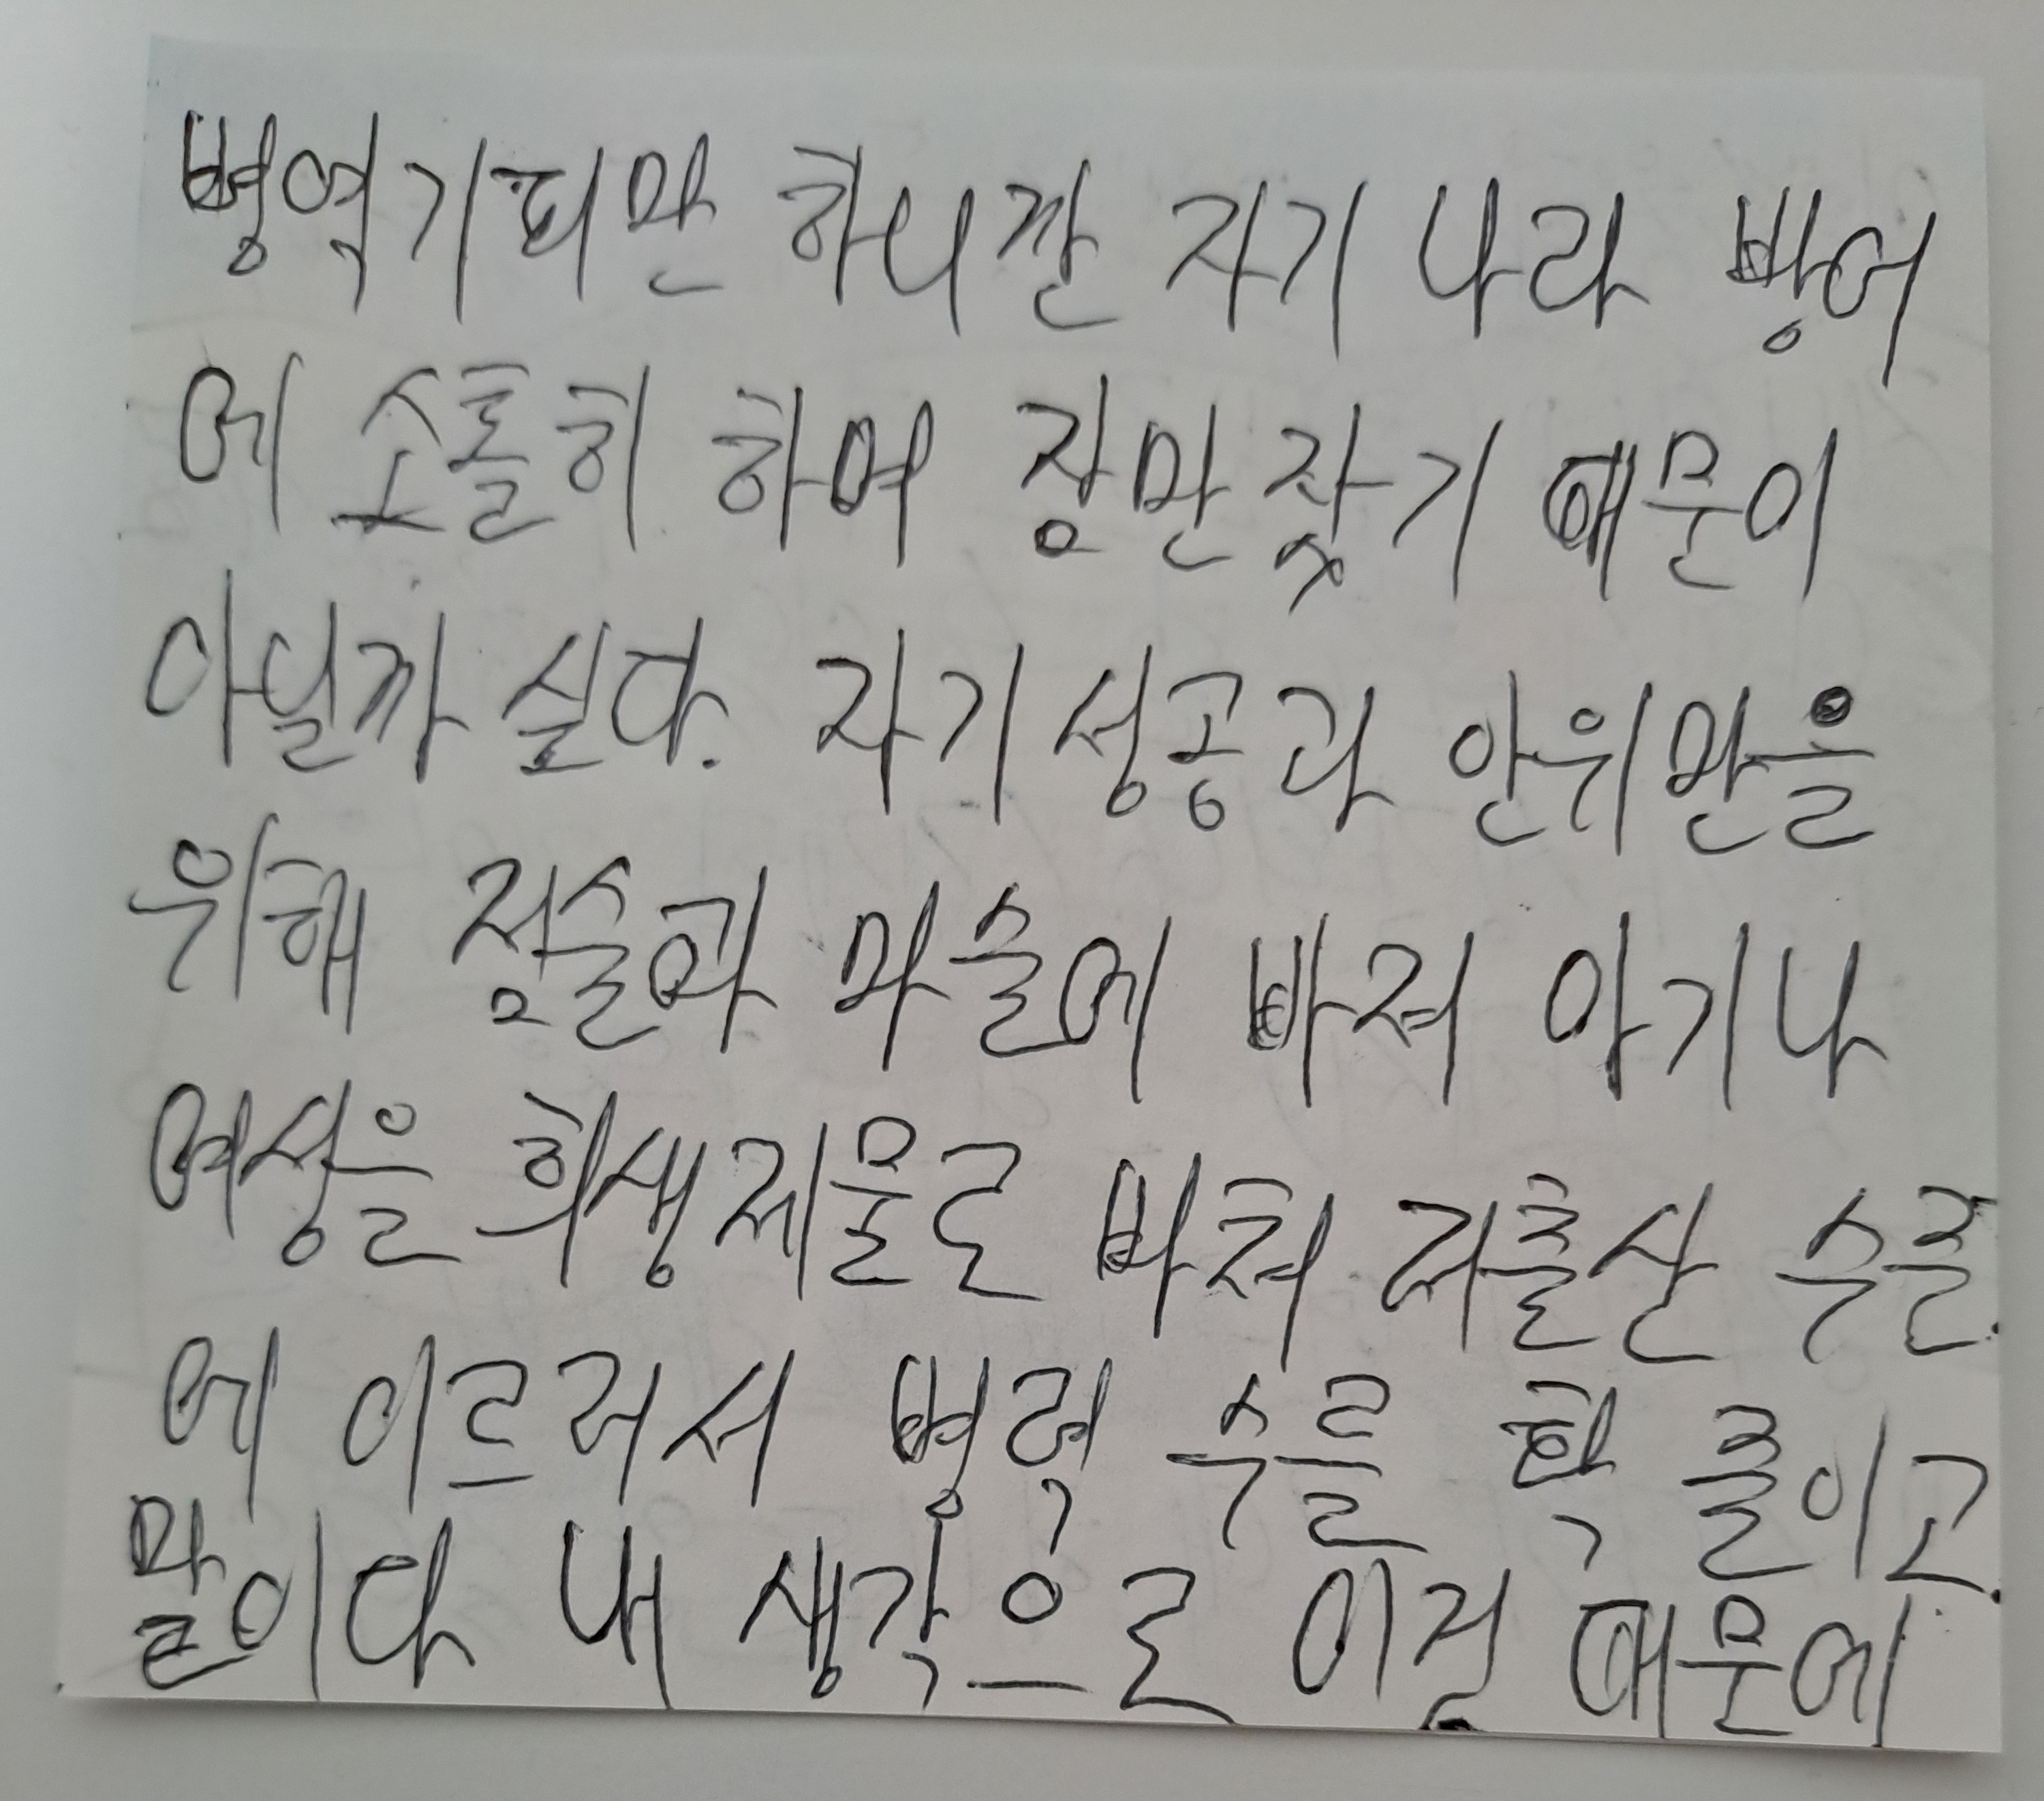 병역기피만 하니깐 자기 나라 방어
에 소홀히 하며 잠만 잤기 때문이
아닐까 싶다. 자기 성공과 안위만을
위해 점술과 마술에 빠져 아기나
여성을 희생제물로 바쳐 저출산 수준
에 이르러서 병력 수를 확 줄이고
말이다 내 생각으로 이걸 때문에